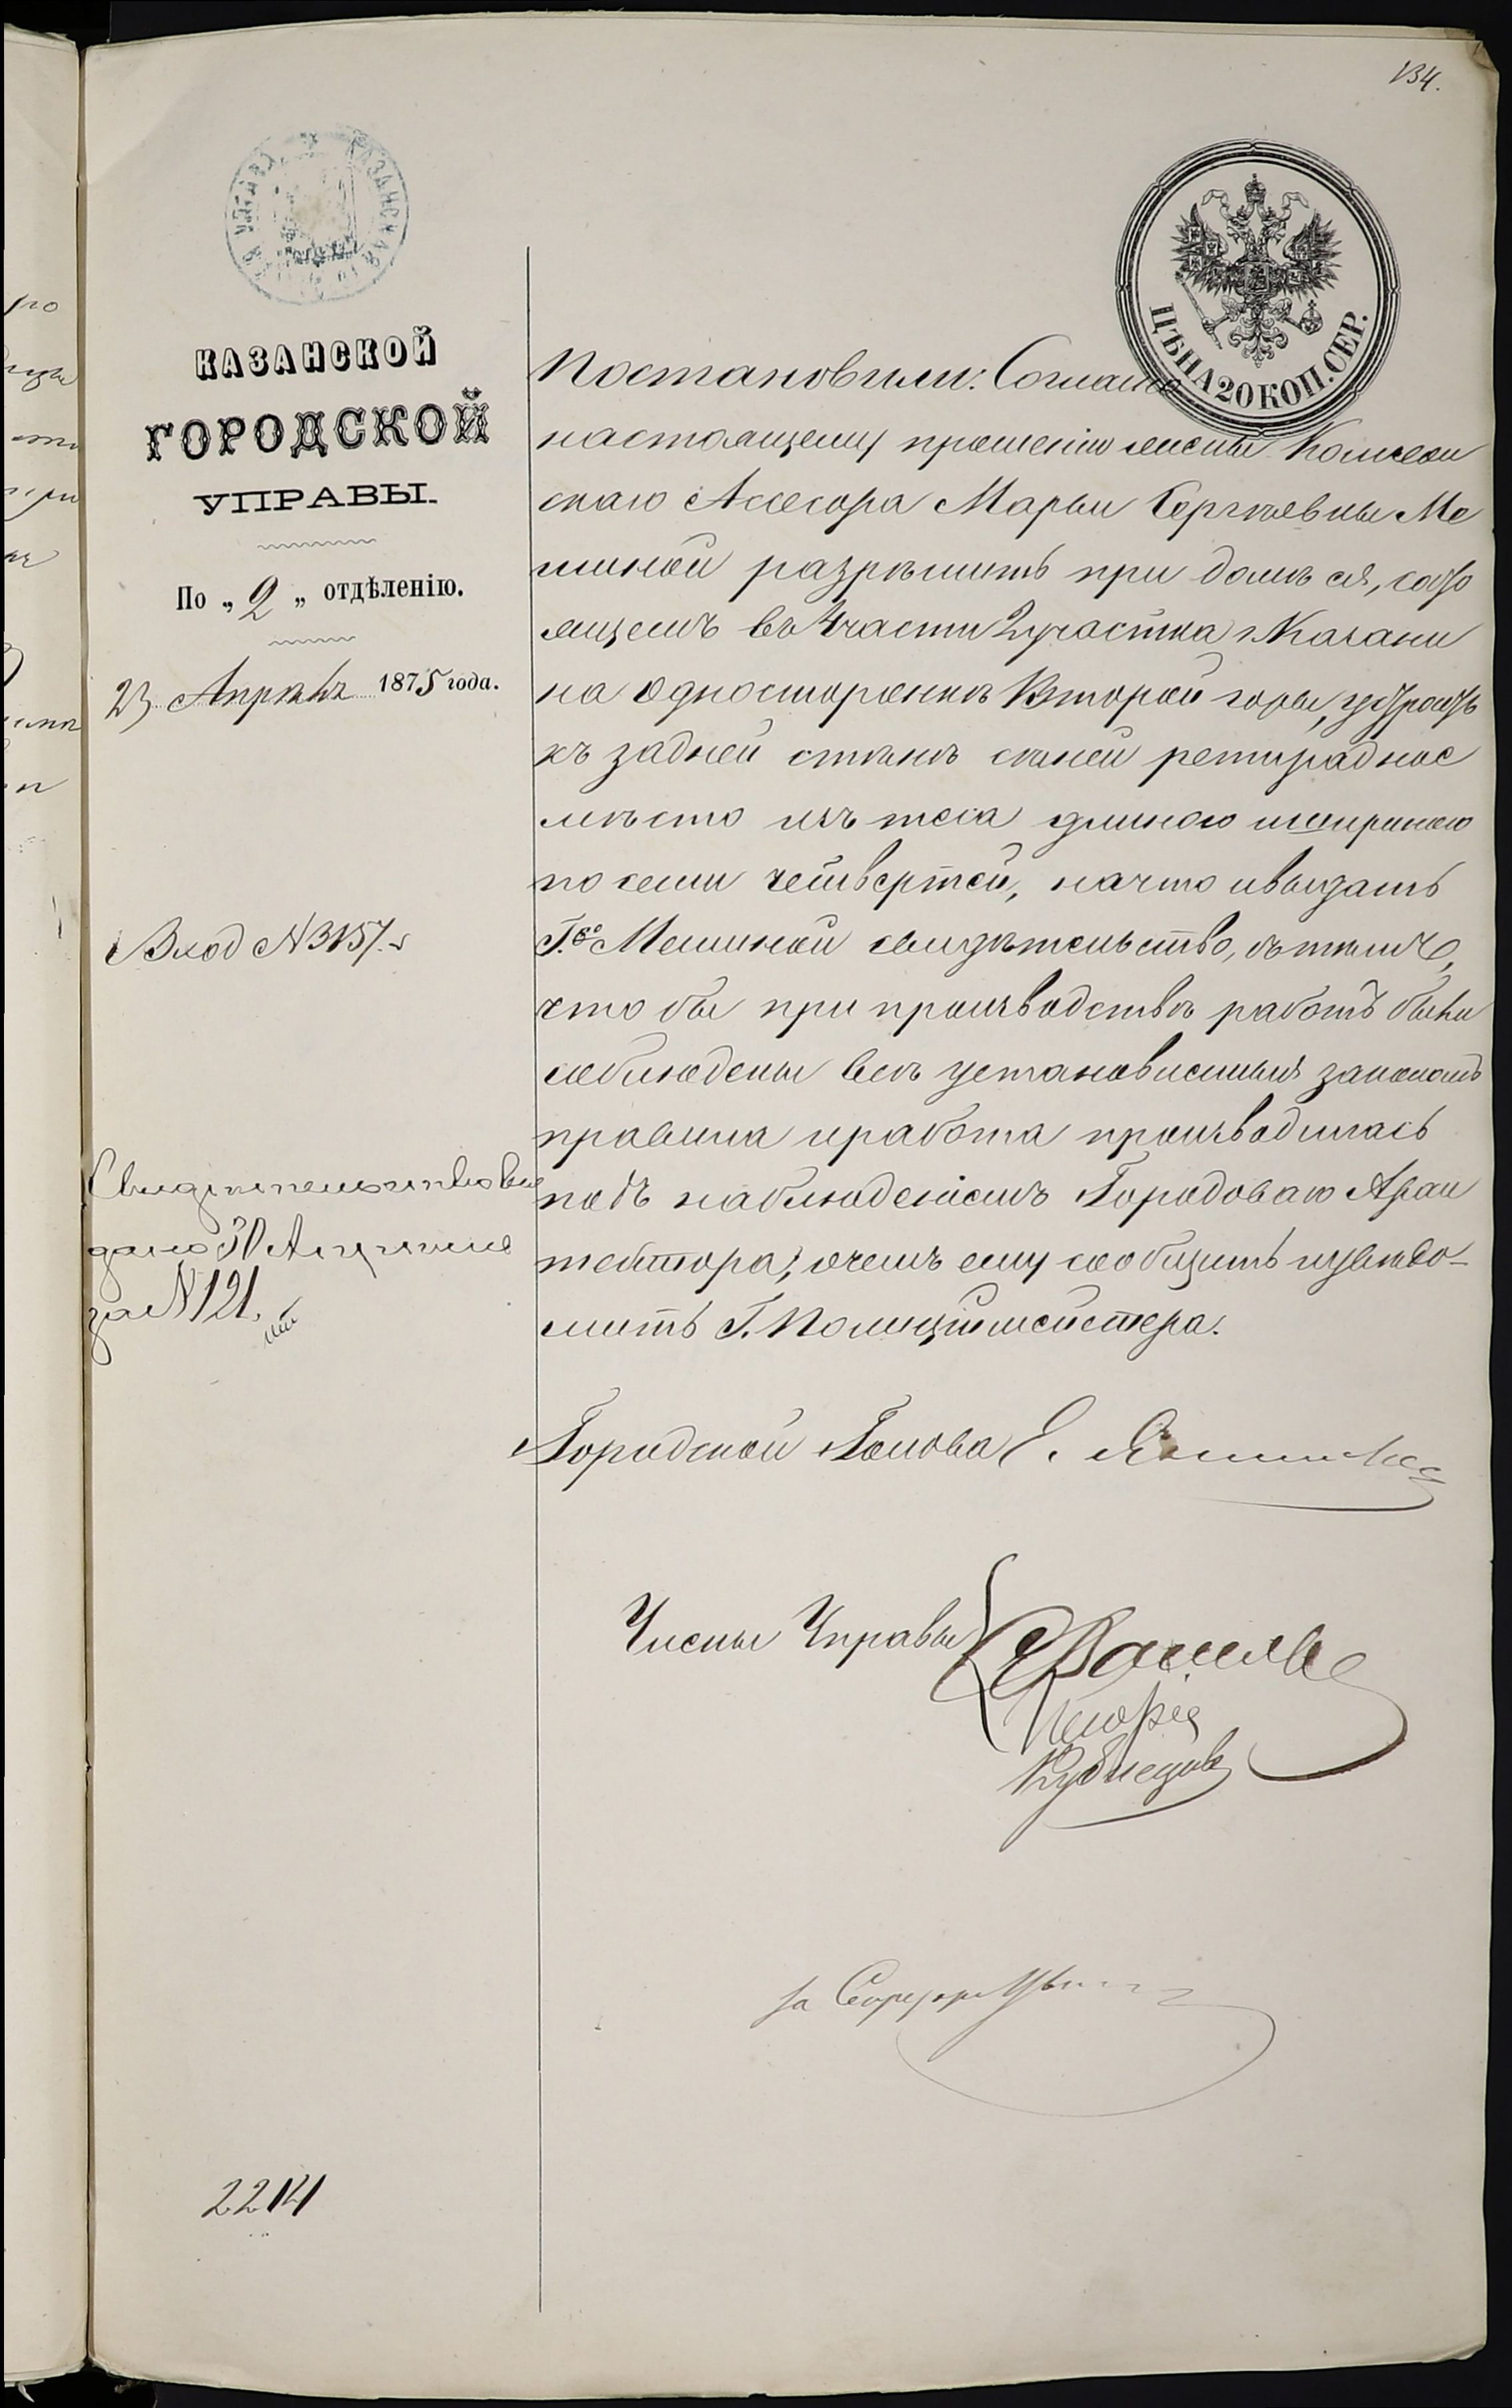 134.
КАЗАНСКАЯ
УПРАВА
ЦѢНА 20 КОП. СЕР.
КАЗАНСКОЙ
ГОРОДСКОЙ
УПРАВЫ.
По „ 2 „ отдѣленію.
23 Апрѣль 1875 года.
Вход № 3157.
Свидѣтельство вы
дано 30 Апрѣля
за № 121.
2214
Постановили: Согласно
настоящему прошенію жены Коллеж
скаго Ассесора Марьи Сергѣевны Ме
шиной разрѣшить при домѣ ея, состо
ящемъ въ 4 части 2 участка г. Казани
на односторонкѣ Второй горы, устроить
къ задней стѣнѣ сѣней ретирадное
мѣсто изъ теса длиною и шириною
по семи четвертей, на что и выдать
Г.жѣ Мешиной свидѣтельство, съ тѣмъ,
что бы при производствѣ работъ были
соблюдены всѣ установленныя закономъ
правила и работа производилась
подъ наблюденіемъ Городоваго Архи
тектора; о чемъ ему сообщить и увѣдо-
мить Г. Полиціймейстера.
Городской Голова Е.
Члены Управы
Кузнецовъ
за Секретаря